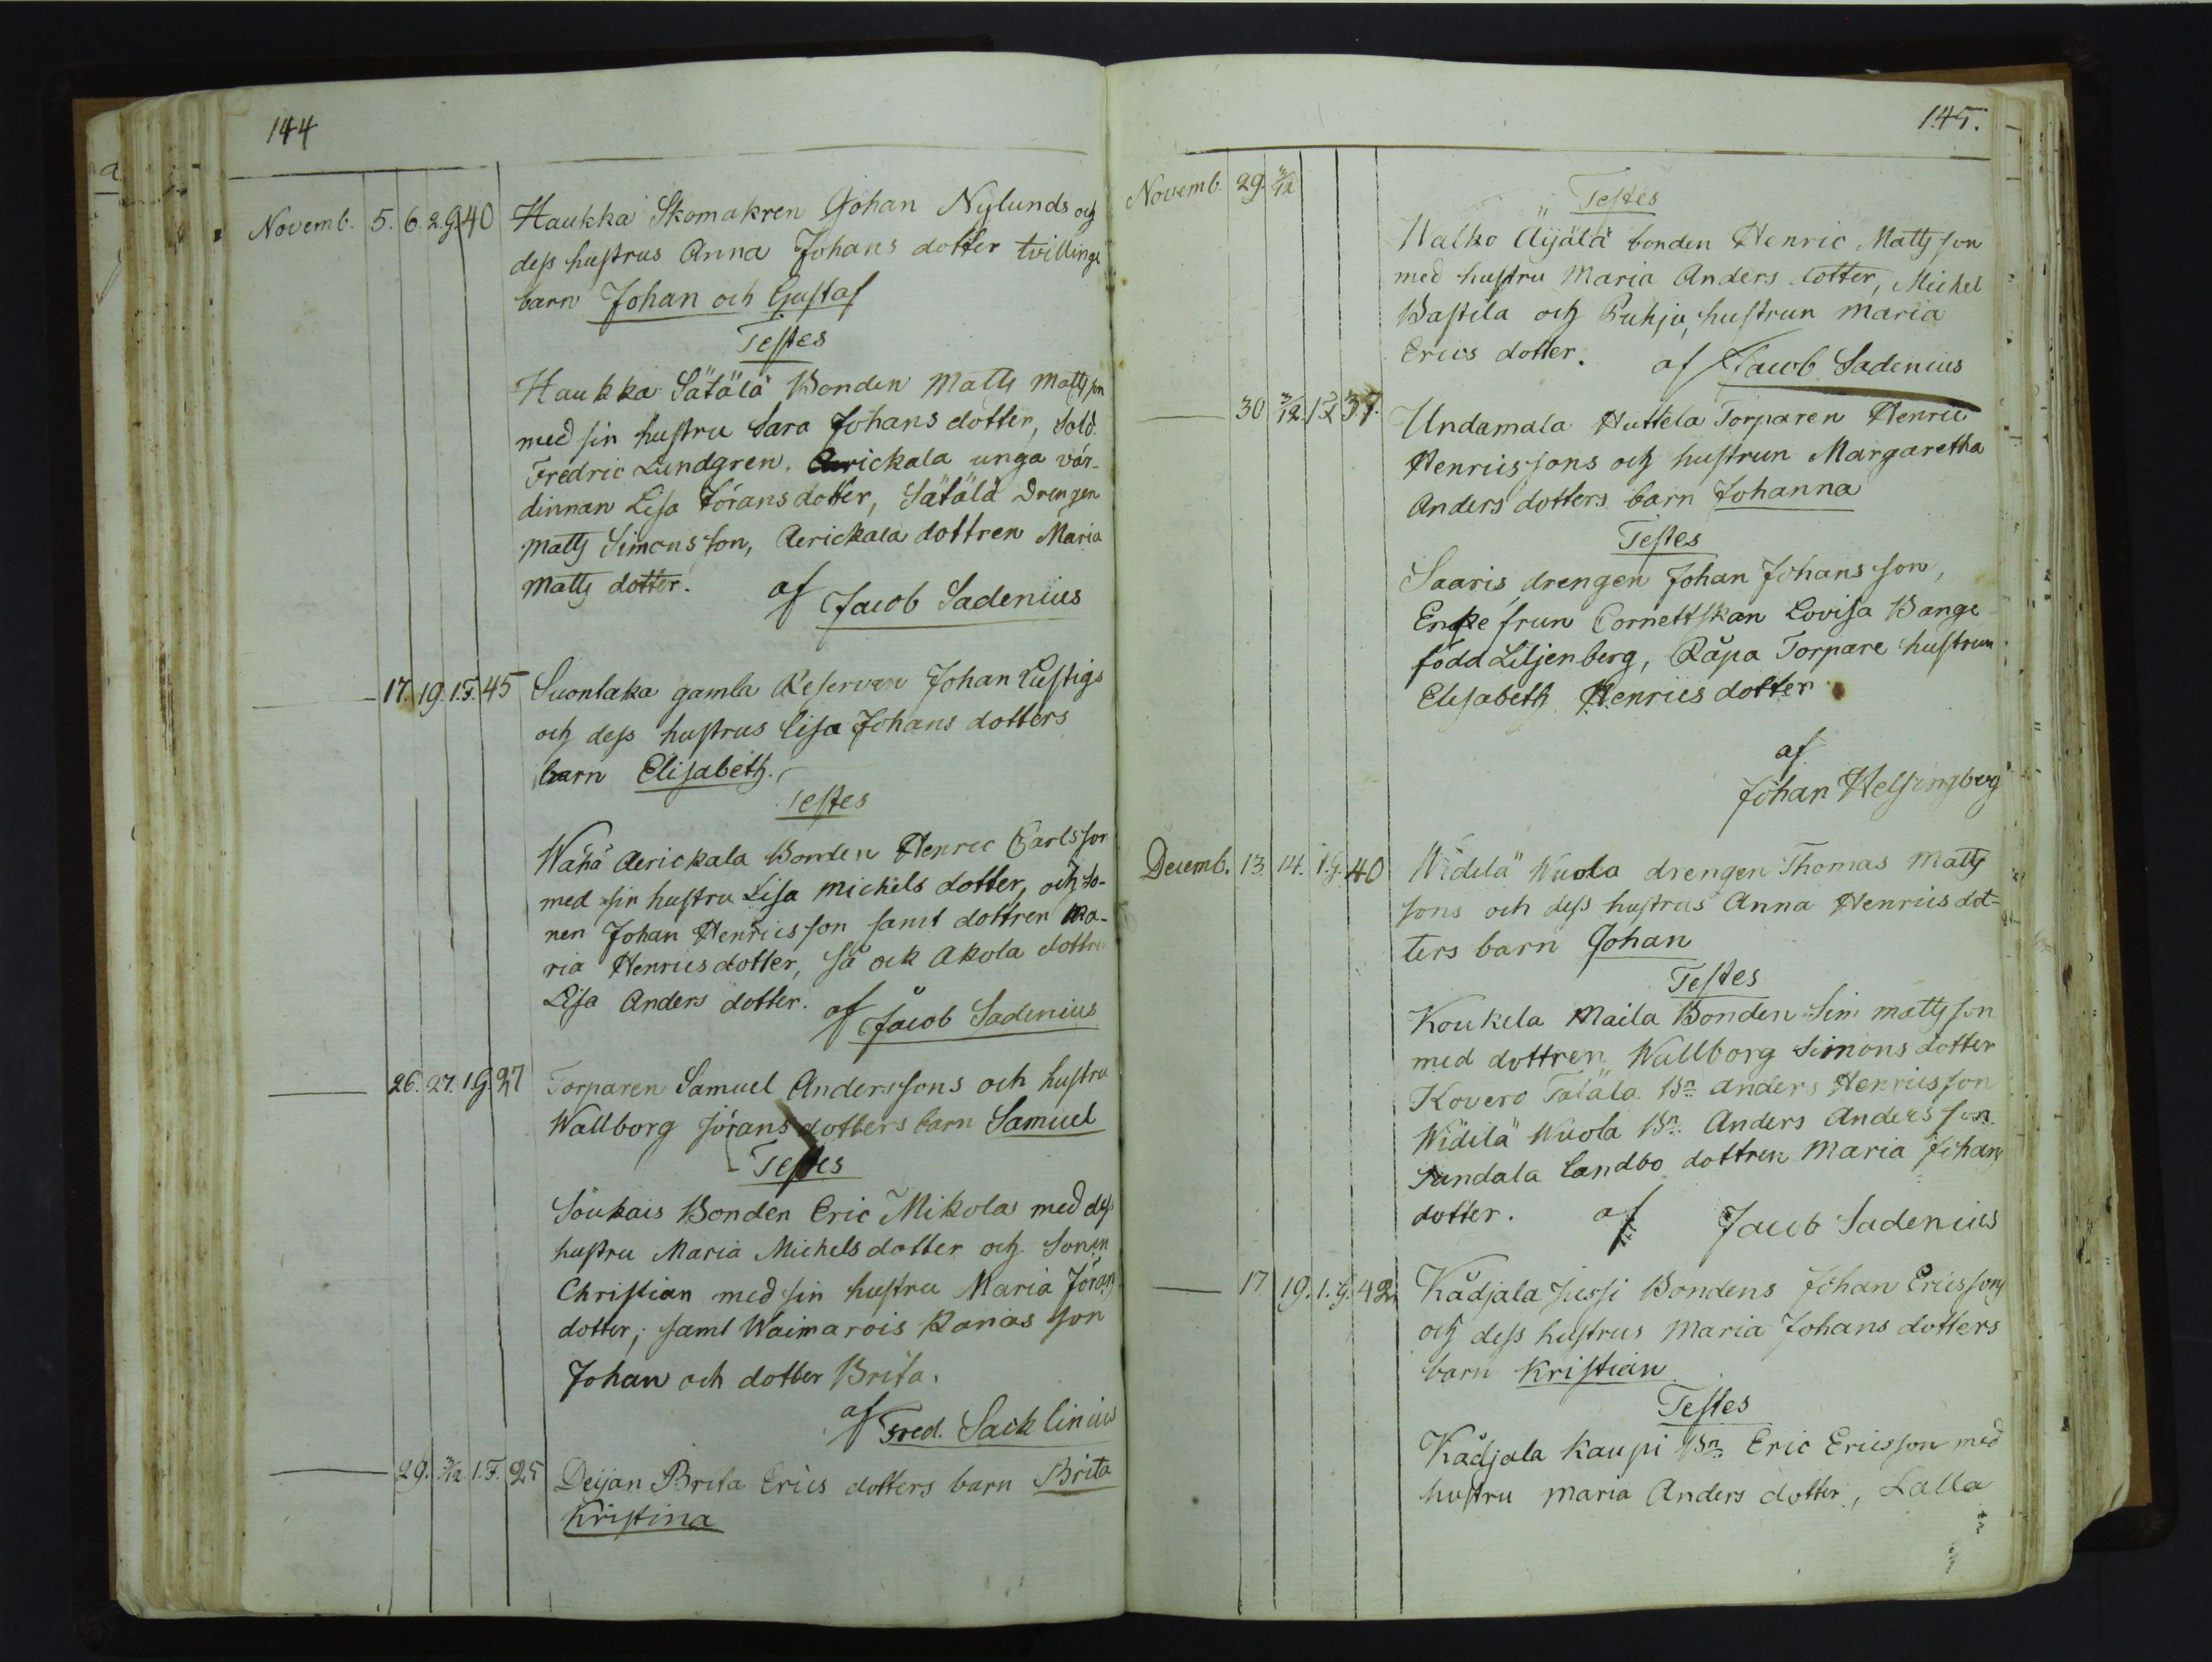 144
Novemb. 5. 6. 2.g. 40 Haukka Skomakren Johan Nylunds och
dess hustrus Anna Johans dotter tvillinge
barn Johan och Gustaf
Testes
Haukka Sätälä Bonden Matts Mattsson
med sin hustru Sara Johans dotter, Sold.
Fredric Lundgren, Aerickala unga vär-
dinnan Lisa Jörans dotter, Sätälä Drengen
Matts Simonsson, Aerickala dottren Maria
Matts dotter. af Jacob Sadenius
17. 19. 1.F. 45 Suontaka gamla Reserven Johan Lustigs
och dess hustrus Lisa Johans dotters
barn Elisabeth.
Testes
Wähä Aerickala Bonden Henric Carlsson
med sin hustru Lisa Michels dotter, och so-
nen Johan Henricsson samt dottren Ma-
ria Henricsdotter, så ock Akola dottren
Lisa Anders dotter. af Jacob Sadenius
26. 27. 1.g. 27 Torparen Samuel Anderssons och hustru
Wallborg Jörans dotters barn Samuel
Testes
Soukais Bonden Eric Mikola med dess
hustru Maria Michels dotter och Sonen
Christian med sin hustru Maria Jörans
dotter; samt Waimarois Ranas son
Johan och dotter Brita.
af Fred. Sacklinius
29. 3/12 1.F. 25 Deijan Brita Erics dotters barn Brita
Kristina
145.
Novemb. 29. 3/12
Testes
Walko Äijälä bonden Henric Mattsson
med hustru Maria Anders dotter, Michel
Bastila och Puhju, hustrun Maria
Erics dotter. af Jacob Sadenius
30 3/12. 1.F. 37. Undamala Huttela Torparen Henric
Henricssons och hustrun Margaretha
Anders dotters barn Johanna
Testes
Saaris drengen Johan Johansson,
Enke frun Cornettskan Lovisa Bange
född Liljenberg, Råpa Torpare hustrun
Elisabeth Henrics dotter
af
Johan Helsingberg
Decemb. 13. 14. 1.g. 40 Widilä Wuola drengen Thomas Matts
sons och dess hustrus Anna Henrics dot-
ters barn Johan
Testes
Koukela Maila Bonden Sim. Mattsson
med dottren Wallborg Simons dotter
Kovero Talala Bn Anders Henricsson
Widilä Wuola Bn. Anders Andersson
Tandala Landbo dottren Maria Johans
dotter. af Jacob Sadenius
17 19. 1.g. 42 Kådjala Jussi Bondens Johan Ericssons
och dess hustrus Maria Johans dotters
barn Kristian
Testes
Kådjala Kaupi Bn Eric Ericsson med
hustru Maria Anders dotter, Lalla